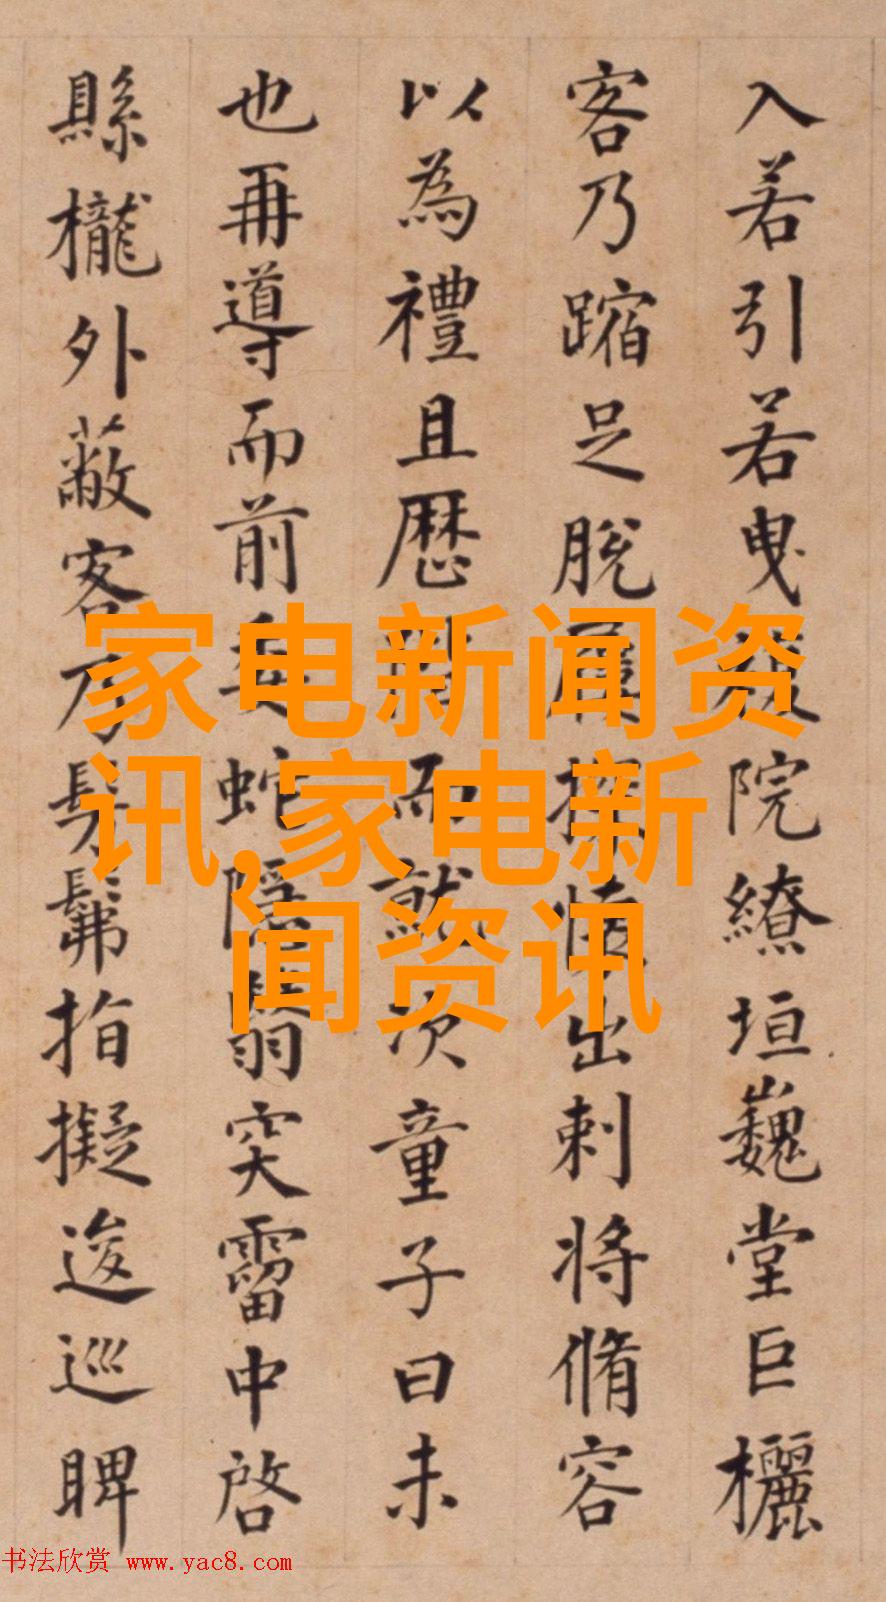 入若引若曳院繚垣巍堂巨欐
客乃蹜足脫探出刺將脩容
以為禮且歷階而就次童子曰未
也再導而前委蛇隱翳突霤中啓
縣櫳外蔽客乃髣髴指擬逡巡睥
家电新闻资
讯,家电新
闻资讯
书法欣赏 www.yac8.com